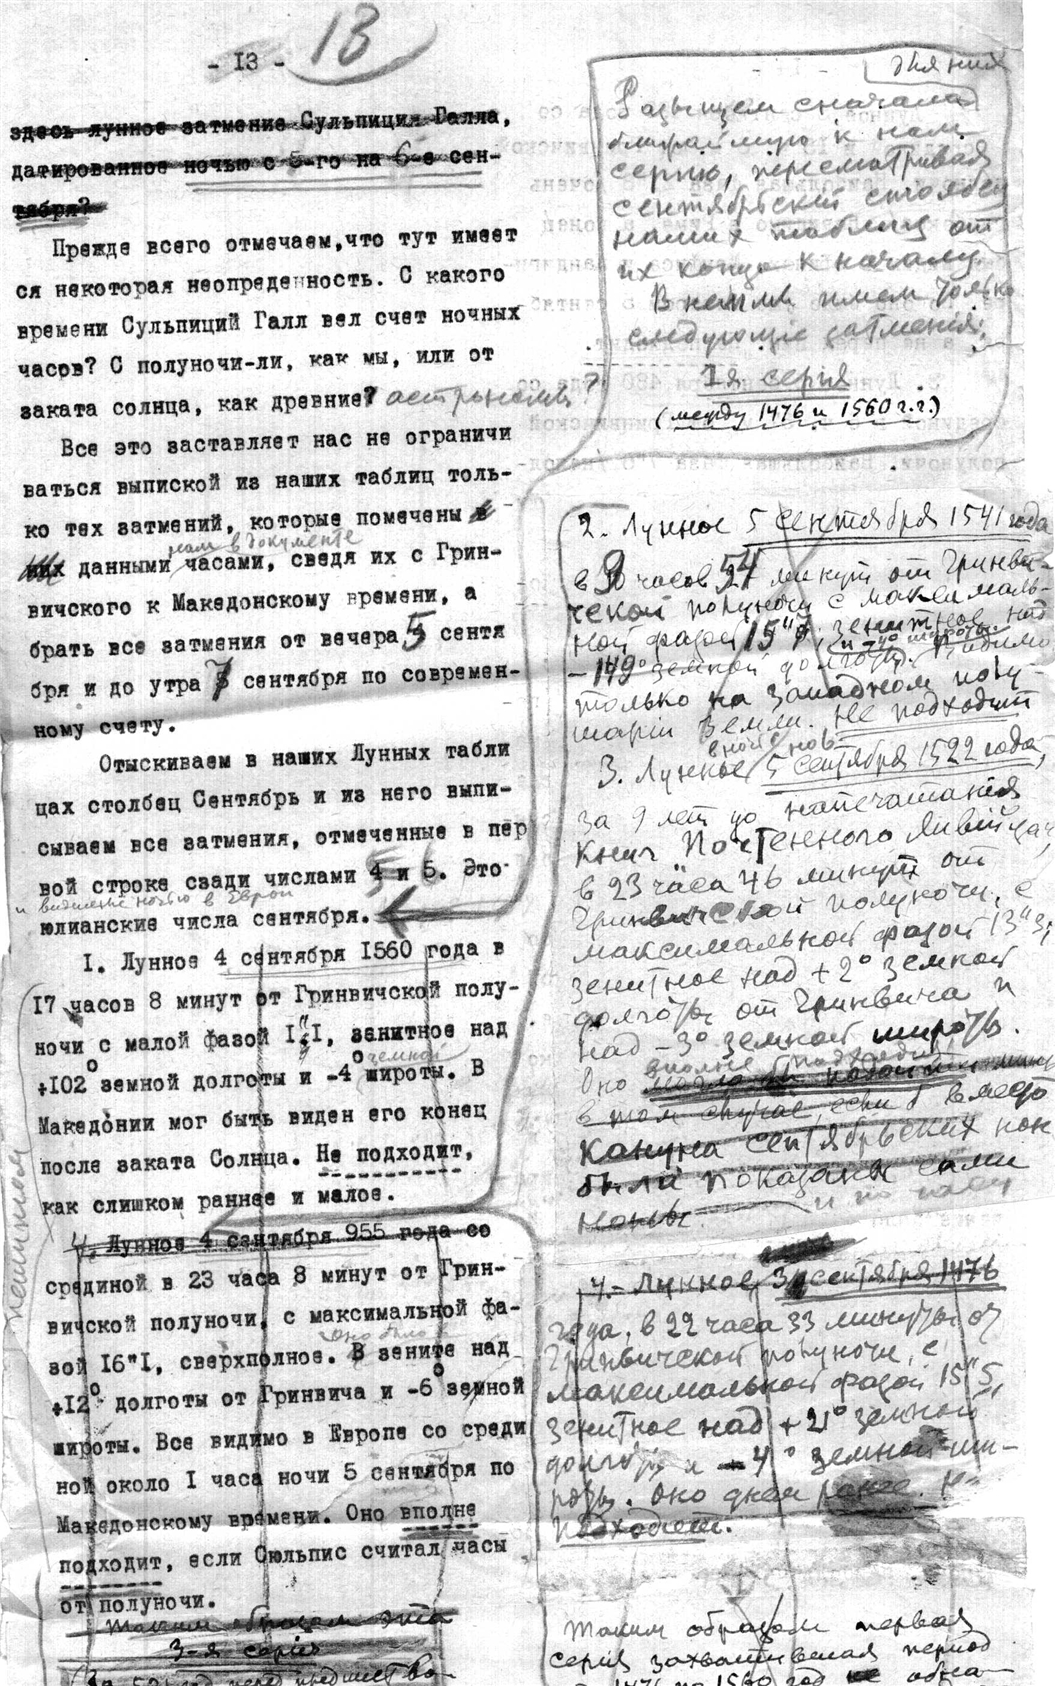 - 13 -
13
здесь лунное затмение Сульпиция Галла,
датированное ночью с 5-го на 6-е сен-
тября?
Прежде всего отмечаем,что тут имеет
ся некоторая неопреденность. С какого
времени Сульпиций Галл вел счет ночных
часов? С полуночи-ли, как мы, или от
заката солнца, как древние астрономы?
Все это заставляет нас не ограничи
ваться выпиской из наших таблиц толь-
ко тех затмений, которые помечены
нам в документе
данными часами, сведя их с Грин-
вичского к Македонскому времени, а
брать все затмения от вечера 5 сентя
бря и до утра 7 сентября по современ-
ному счету.
Отыскиваем в наших Лунных табли
цах столбец Сентябрь и из него выпи-
сываем все затмения, отмеченные в пер
вой строке сзади числами 4 и 5. Это
и видимые ночью в Европе
юлианские числа сентября.
I. Лунное 4 сентября I560 года в
I7 часов 8 минут от Гринвичской полу-
ночи с малой фазой I"I, зенитное над
+I02° земной долготы и -4° земной широты. В
Македонии мог быть виден его конец
после заката Солнца. Не подходит,
как слишком раннее и малое.
4. Лунное 4 сентября 955 года со
срединой в 23 часа 8 минут от Грин-
вичской полуночи, с максимальной фа-
зой I6"I, сверхполное. Оно было в зените над
+I2° долготы от Гринвича и -6° земной
широты. Все видимо в Европе со среди
ной около I часа ночи 5 сентября по
Македонскому времени. Оно вполне
подходит, если Сюльпис считал часы
от полуночи.
Таким образом эта
3-я серия
петитом
Разыщем сначала
ближайшую к нам
серию, пересматривая
сентябрьский столбец
наших таблиц от
их конца к началу.
В нем мы имеем только
следующие затмения:
1я серия
(между 1476 и 1560 г.г.)
2. Лунное 5 сентября 1541 года
в часов минут от Гринви-
ческой полуночи с максималь-
ной фазой 15", зенитное над
-149° земной долготы. Видимо
только на западном полу-
шарии Земли. Не подходит
3. Лунное 5 сентября 1522 года,
за 9 лет до напечатания
книг Почтенного Ливия
в 23 часа 46 минут от
Гринвической полуночи, с
максимальной фазой 13"3;
зенитное над +2° земной
долготы от Гринвича и
над -3° земной широты.
вполне подходит
Оно
в том случае, если б вместо
кануна сентябрьских нон
были показаны сами
ноны.
4.- Лунное 3 сентября 1476
года, в 22 часа 33 минуты от
Гринвической полуночи, с
максимальной фазой 15"5,
зенитное над +21° земной
долготы и -4° земной ши-
роты. Оно днем ранее. Не
подходит.
Таким образом первая
серия захватившая период